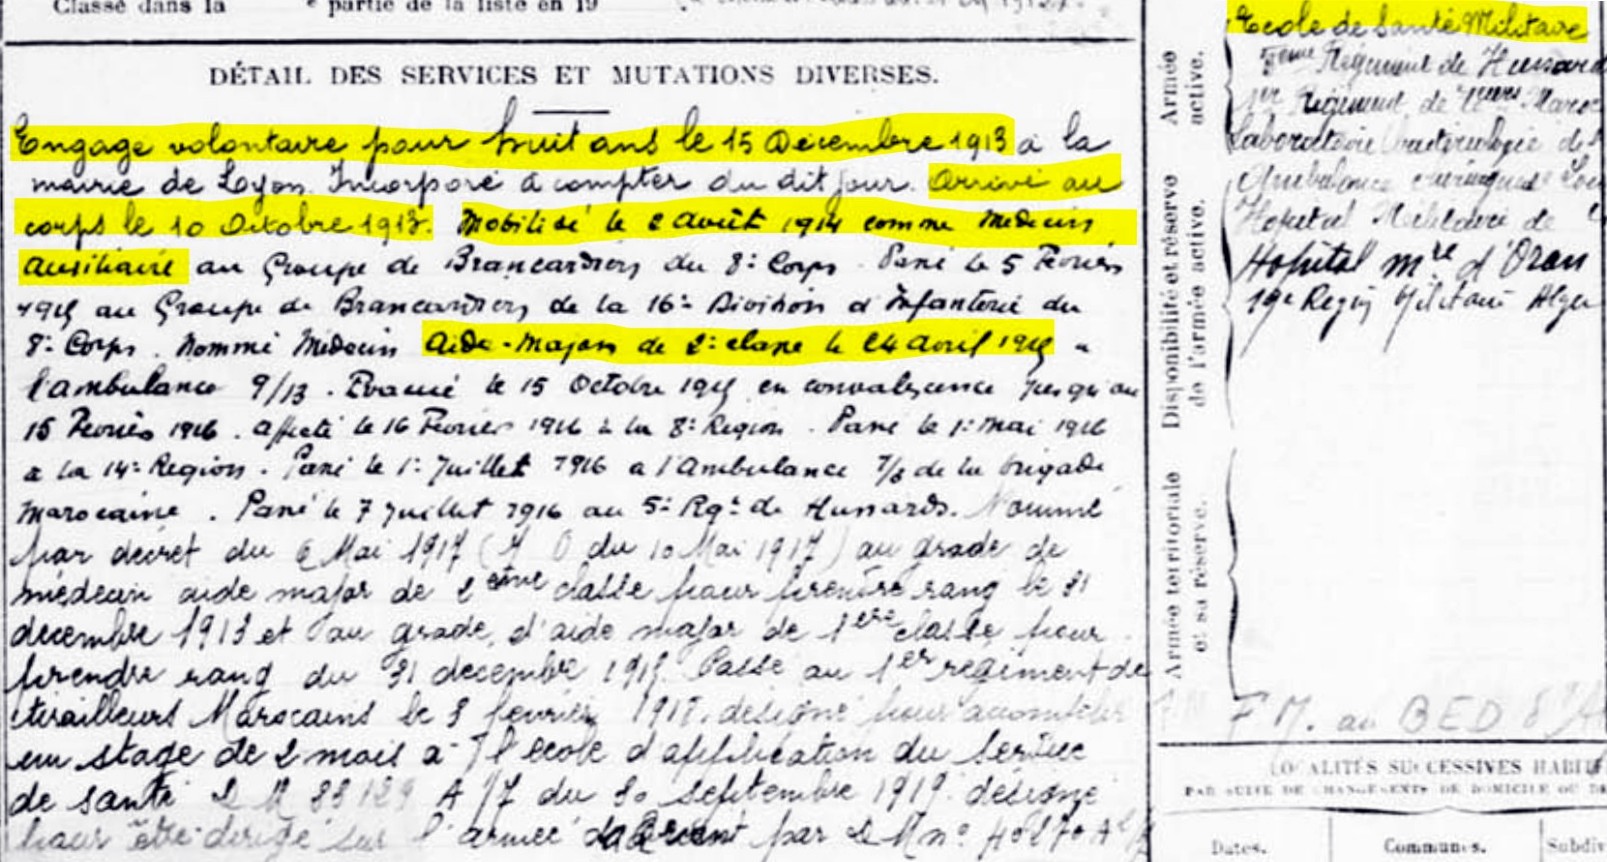 Classé dans la partie de la liste en 19
DÉTAIL DES SERVICES ET MUTATIONS DIVERSES.
Engagé volontaire pour huit ans le 15 Décembre 1913 à la
mairie de Lyon. Incorporé à compter du dit jour. Arrivé au
corps le 10 Octobre 1913. Mobilisé le 2 Août 1914 comme Médecin
Auxiliaire au Groupe de Brancardiers du 8e Corps. Passé le 5 Février
1915 au Groupe de Brancardiers de la 16e Division d'Infanterie du
8e Corps. Nommé Médecin Aide-Major de 2e classe le 24 Avril 1915 à
l'ambulance 9/13. Evacué le 15 Octobre 1915 en convalescence jusqu'au
15 Février 1916. affecté le 16 Février 1916 à la 8e Région. Passé le 1er Mai 1916
à la 14e Région. Passé le 1er Juillet 1916 à l'Ambulance de la brigade
marocaine. Passé le 7 Juillet 1916 au 5e Rgt de Hussards. Nommé
par décret du 6 Mai 1917 (J O du 10 Mai 1917) au grade de
médecin aide major de 2eme classe pour prendre rang le 31
décembre 1913 et au grade d'aide major de 1ere classe pour
prendre rang du 31 decembre 1915. Passé au 1er regiment de
tirailleurs Marocains le 8 février désigné pour accomplir
un stage de 2 mois à l'école d'application du Service
de santé D M A 1/7 du 30 septembre 1919. désigné
pour être dirigé sur l'armée d'Orient par D M no
Armée
active.
Disponibilité et réserve
de l'armée active.
Armée territoriale
et sa réserve.
Ecole de Santé Militaire
5eme Régiment de Hussards
1er Régiment de Maroc
Laboratoire bactériologie de
Ambulance chirurgicale
Hopital Militaire de
Hopital mre d'Oran
19e Région Militaire Alger
F M. au
LOCALITÉS SUCCESSIVES HABIT
PAR SUITE DE CHANGEMENTS DE DOMICILE OU DE
Dates. Communes. Subdiv